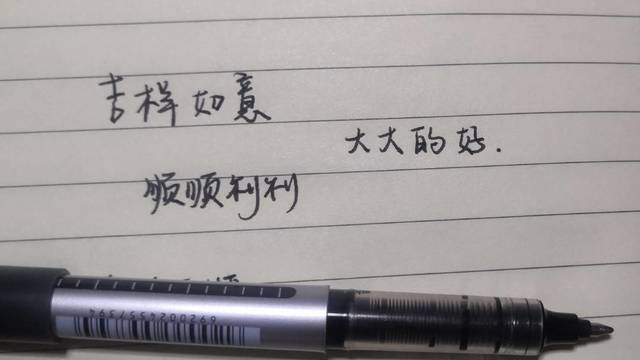 吉祥如意
大大的好.
顺顺利利